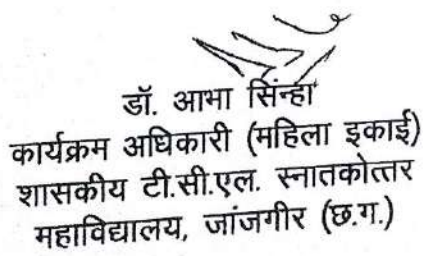 डॉ. आभा सिंन्हा
कार्यक्रम अधिकारी (महिला इकाई)
शासकीय टी.सी.एल. स्नातकोत्तर
महाविद्यालय, जांजगीर (छ.ग.)